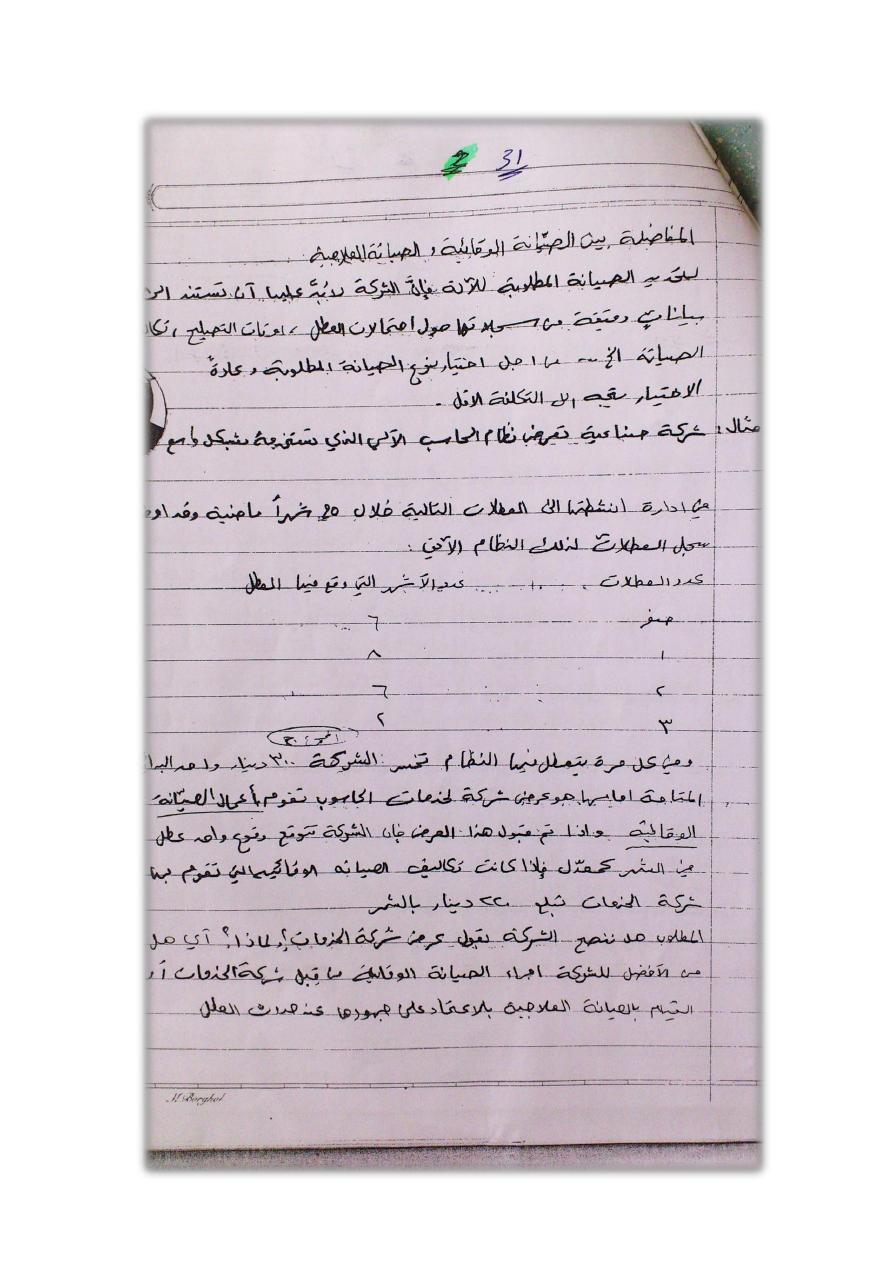 2 31
المفاضلة بين الصيانة الوقائية والصيانة العلاجية
لتحديد الصيانة المطلوبة للآلة فإن الشركة لابد عليها أن تستند الى
بيانات دقيقة من سجلاتها حول احتمالات العطل ، اوقات التصليح ،
الصيانة الخ ... من اجل اختيار نوع الصيانة المطلوبة وعادةً
الاختيار يتجه الى التكلفة الاقل .
مثال : شركة صناعية تعرض نظام الحاسب الآلي الذي تستخدمه بشكل واسع
في ادارة انشطتها الى العطلات التالية خلال شهراً ماضية وقد
سجل العطلات لذلك النظام الآتي :
عدد العطلات ........ عدد الأشهر التي وقع فيها العطل
صفر ٦
١ ٨
٢ ٦
٣ ٢
وفي كل مرة يتعطل فيها النظام تخسر الشركة ٣٠٠ دينار واحد
المتاحة امامها هو عرض شركة لخدمات الحاسوب تقوم بأعمال الصيانة
الوقائية واذا تم قبول هذا العرض فإن الشركة تتوقع وقوع واحد عطل
في الشهر كمعدل فإذا كانت تكاليف الصيانه الوقائية التي تقوم بها
شركة الخدمات تبلغ ٢٢٠ دينار بالشهر
المطلوب هل ننصح الشركة بقبول عرض شركة الخدمات ولماذا؟ أي هل
من الأفضل للشركة اجراء الصيانة الوقائية من قبل شركة الخدمات أو
القيام بالصيانة العلاجية بالاعتماد على جهودها عند حدوث العطل
M.Borghol